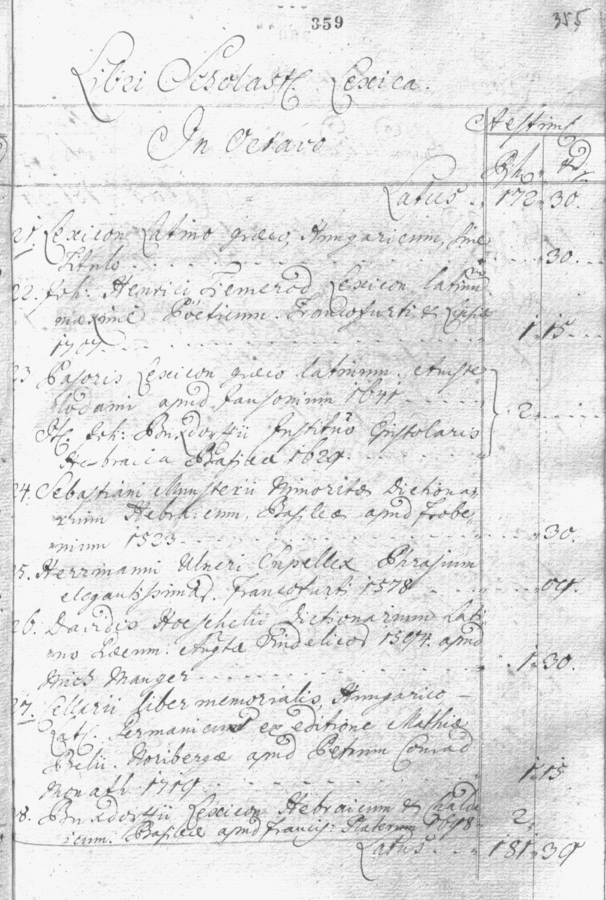 359
355
Libri Scholast. Lexica.
In Octavo
Aestim
Rh. xr
Latus . . 172. 30.
21. Lexicon Latino græco, Hungaricum, sine
titulo . . . 30.
22. Joh: Henrici Lexicon latinum
maxime Pöeticum. Francofurti & Lipsiæ
1. 15.
23 Pasoris Lexicon græco latinum. Amste
lodami apud Jansonium 1641
2
It. Joh: Buxdorfii Epistolaris
Hebraica Basileæ 1629.
24. Sebastiani Munsterii Minoritæ Dictiona
rium Hebraicum. Basileæ apud Frobe
nium 1523 . . . 30.
25. Herrmanni Ulneri Phrasium
elegantissimar. Francofurti 1578
26. Davidis Hoeschelii Dictionarium Lati
no Augtæ Vindelicor 1594. apud
Mich Manger . . . 1. 30.
27. Cellarii liber memorialis, Hungarico -
Lat. Germanicus ex editione Mathiæ
Belii. Noribergæ apud Petrum Conrad
Monath 1719 . . . 1. 15
28. Buxdorfii Lexicon Hebraicum & Chalda
icum. Basileæ apud
2.
Latus . . 181. 39